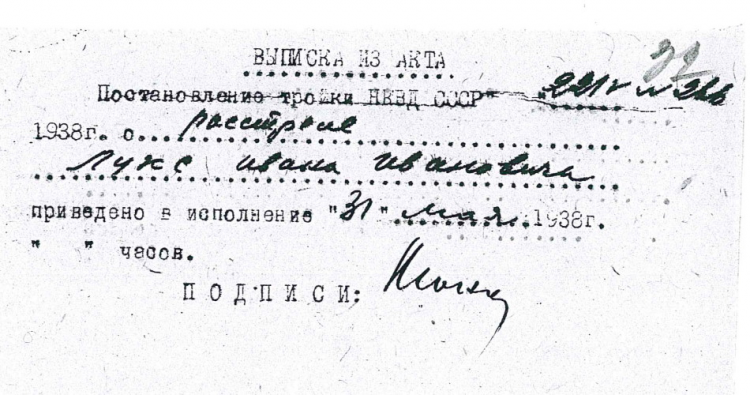 ВЫПИСКА ИЗ АКТА
Постановление тройки НКВД СССР
1938г. о... расстреле
Лукс Ивана Ивановича
приведено в исполнение "31" мая 1938г.
" " часов.
ПОДПИСИ: